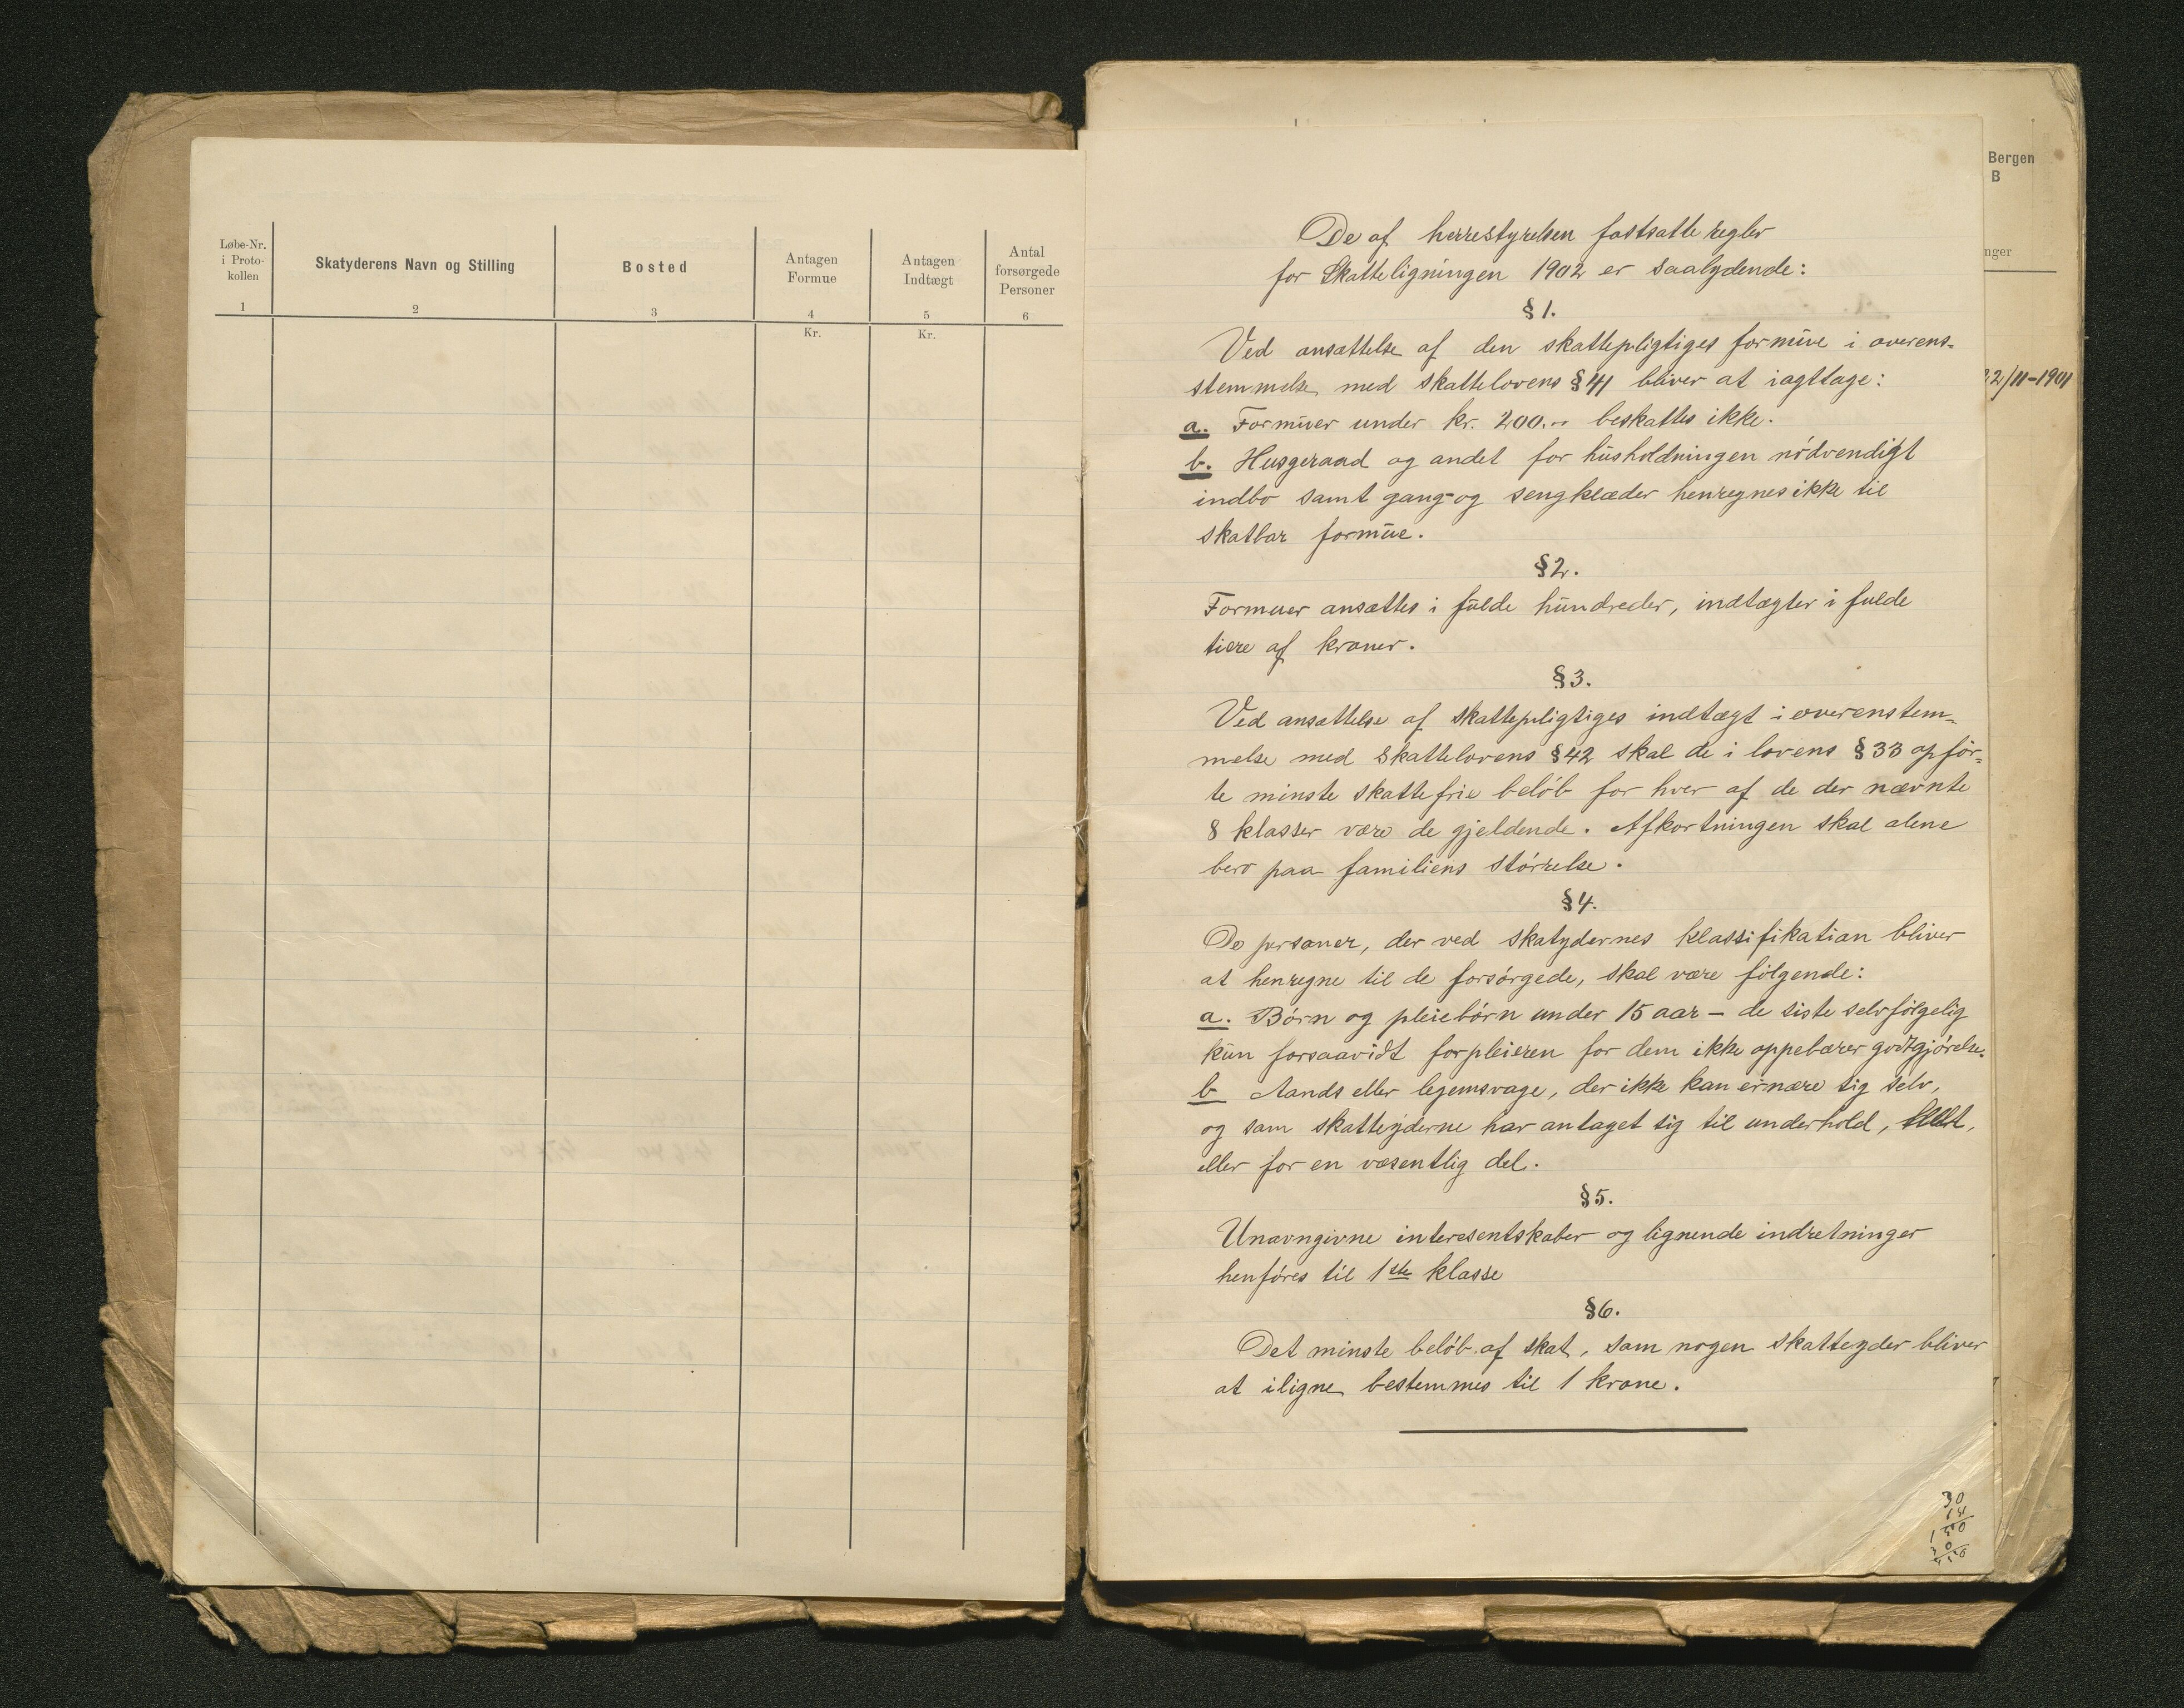 Løbe-Nr.
i Proto-
kollen
Skatyderens Navn og Stilling
Bosted
Antagen
Formue
Antagen
Indtægt
Antal
forsørgede
Personer
1
2
3
4
5
6
Kr.
Kr.
De af herrestyrelsen fastsatte regler
for Skatteligningen 1902 er saalydende:
§ 1.
Ved ansættelse af den skattepligtiges formue i overens-
stemmelse med skattelovens § 41 bliver at iagttage:
a. Formuer under kr. 200.- beskattes ikke.
b. Husgeraad og andet for husholdningen nødvendigt
indbo samt gang- og sengklæder henregnes ikke til
skatbar formue.
§ 2.
Formuer ansættes i fulde hundreder, indtægter i fulde
tiere af kroner.
§ 3.
Ved ansættelse af skattepligtiges indtægt i overenstem-
melse med Skattelovens § 42 skal de i lovens § 33 opfør-
te minste skattefrie beløb for hver af de der nævnte
8 klasser være de gjeldende. Afkortningen skal alene
bero paa familiens størrelse.
§ 4.
De personer, der ved skatydernes klassifikation bliver
at henregne til de forsørgede, skal være følgende:
a. Børn og pleiebørn under 15 aar - de siste selvfølgelig
kun forsaavidt forpleieren for dem ikke oppebærer godtgjørelse.
b Aands eller legemsvage, der ikke kan ernære sig selv,
og som skatteyderne har antaget sig til underhold,
eller for en væsentlig del.
§ 5.
Unavngivne interesentskaber og lignende indretninger
henføres til 1ste klasse
§ 6.
Det minste beløb af skat, som nogen skatteyder bliver
at iligne bestemmes til 1 krone.
Bergen
B
nger
22/11-1901
30